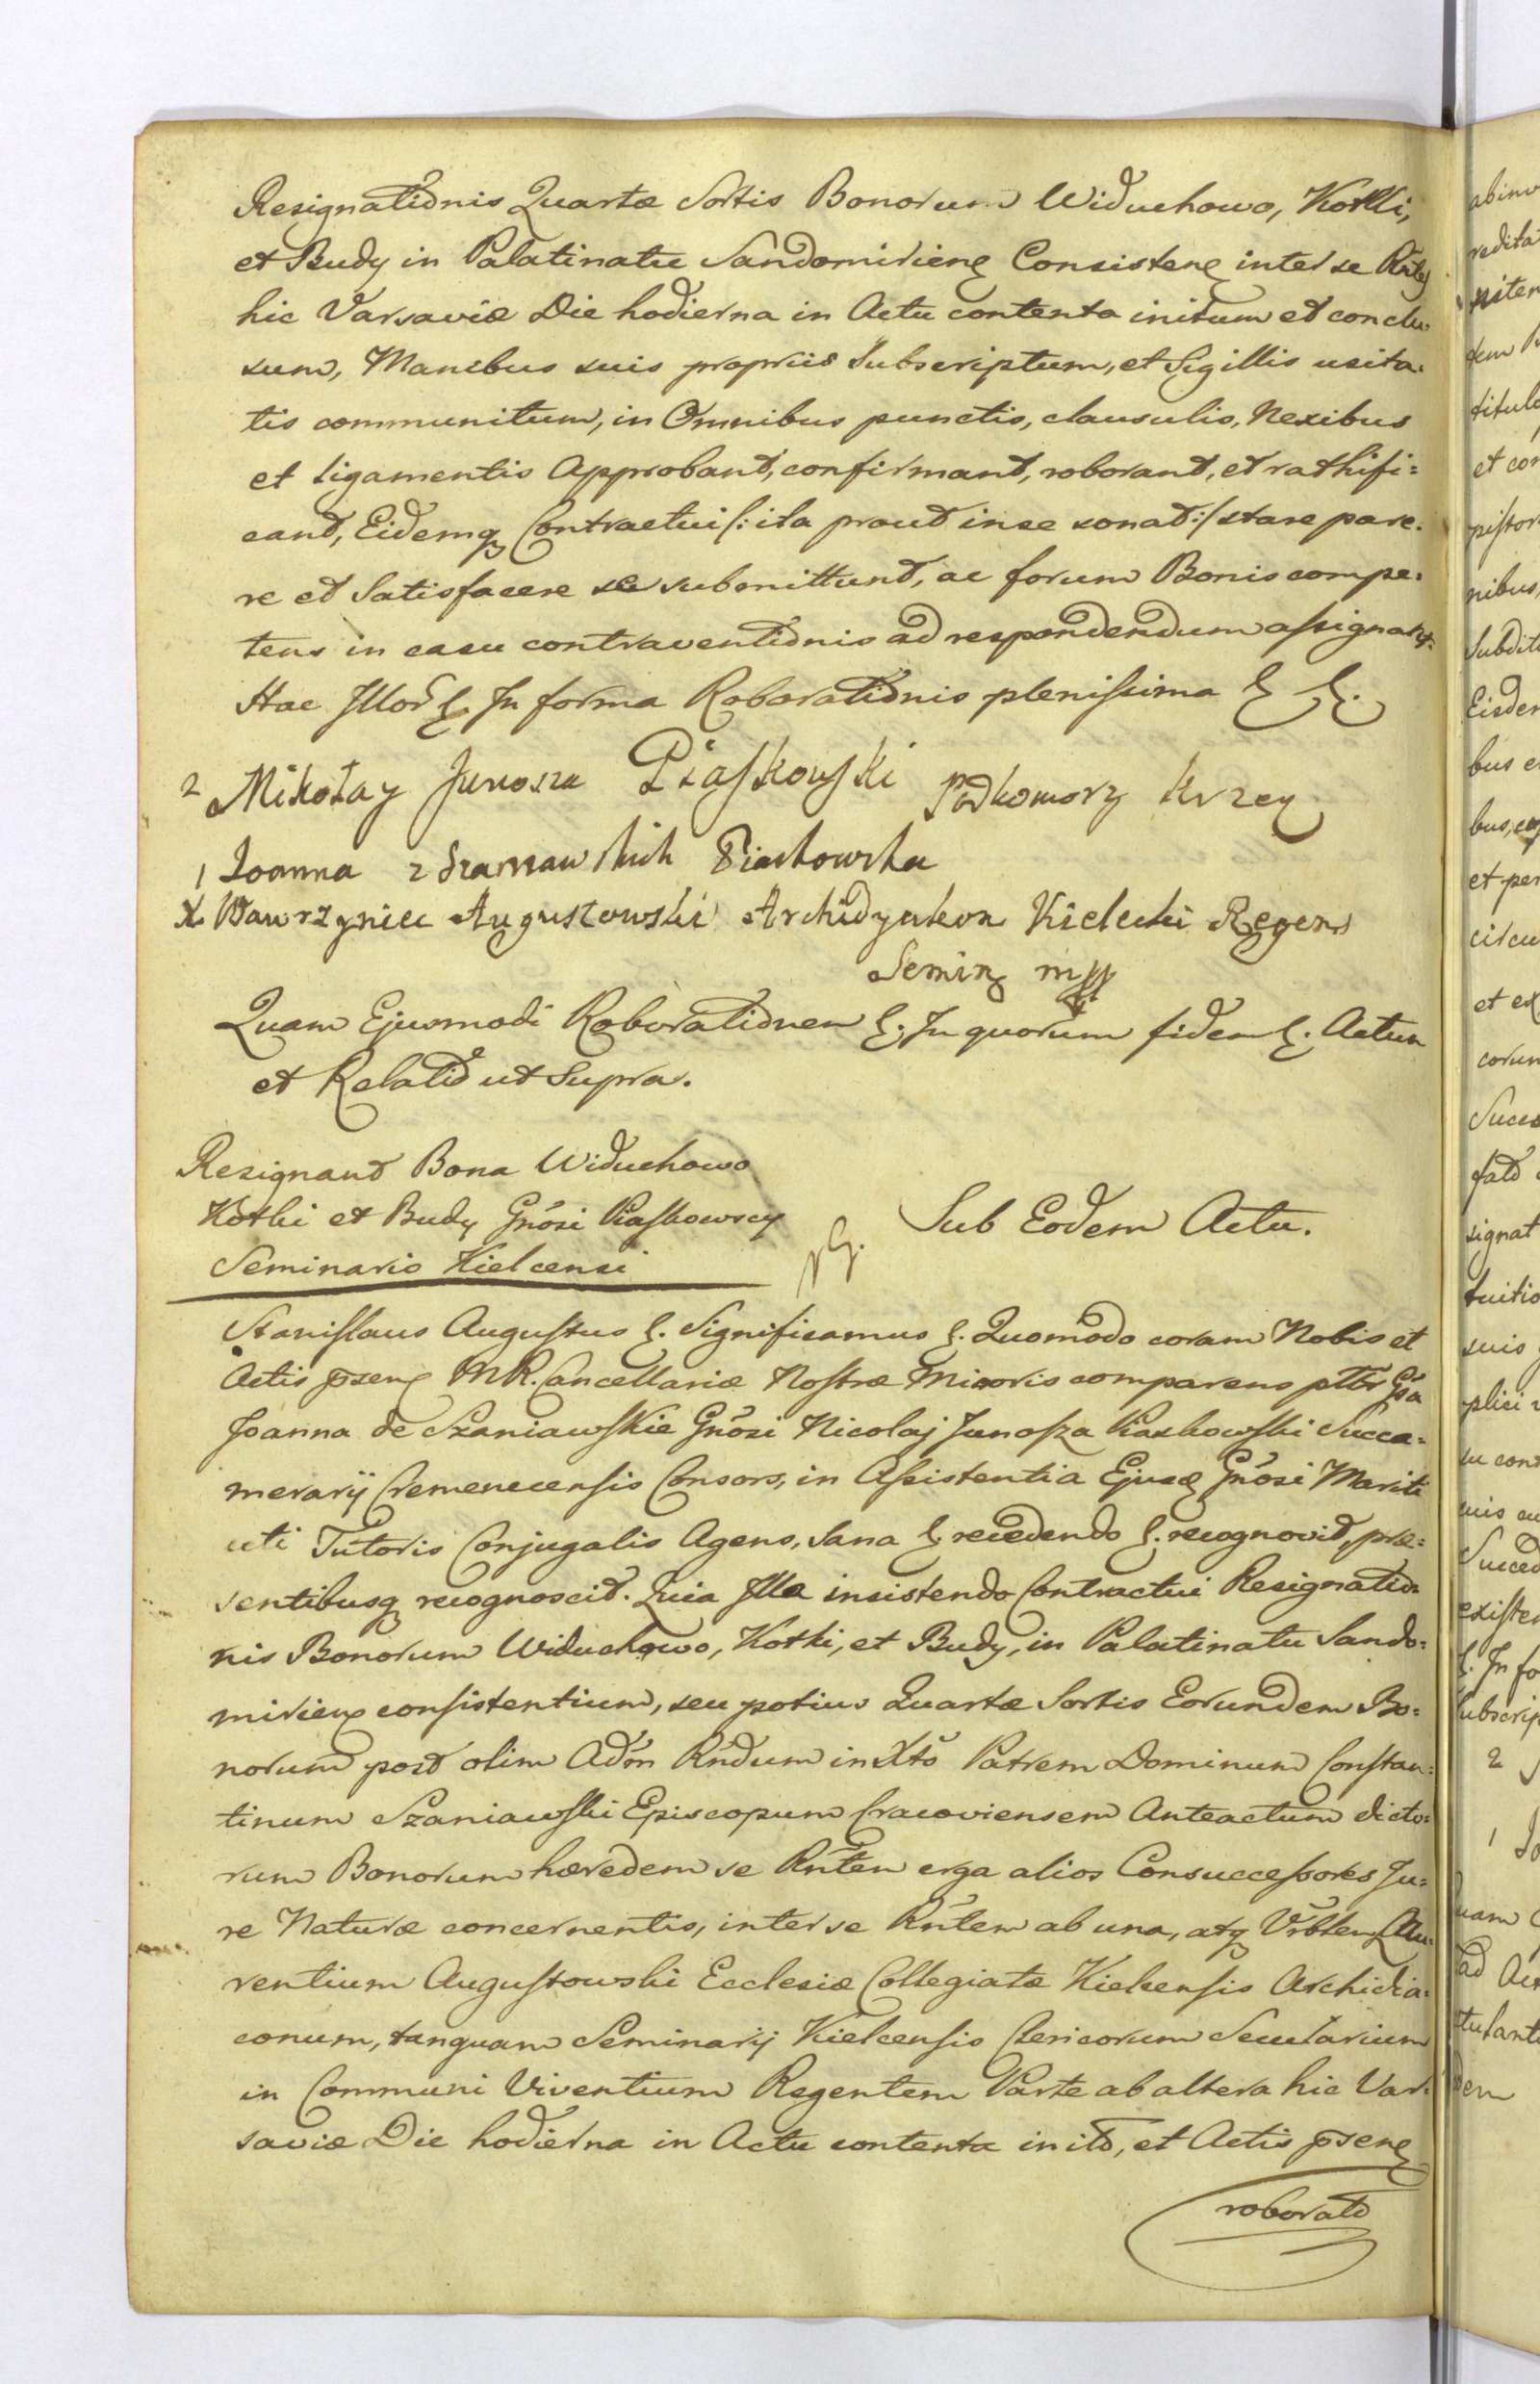 Resignationis Quartæ Sortis Bonorum Widuchowo, Kotki,
et Budy in Palatinatu Sandomirien Consisten inter se Rntes
hic Varsaviæ Die hodierna in Actu contenta initum et conclu-
sum, Manibus suis propriis Subscriptum, et Sigillis usita-
tis communitum, in Omnibus punctis, clausulis, Nexibus
et Ligamentis Approbant, confirmant, roborant, et rathifi=
cant, Eidemq Contractui /: ita prout in se sonat :/ stare pare-
re et Satisfacere se submittunt, ac forum Bonis compe-
tens in casu contraventionis ad respondendum assignant.
Hac Illor In forma Roborationis plenissima
2 Mikołay Junosza Piaskowski Podkomorz Krzem
1 Joanna z Szaniawskich Piaskowska
X Wawrzyniec Augustowski Archidyakon Kielecki Regens
Semin mpp
Quam Ejusmodi Roborationem In quorum fidem Actum
et Relatio ut Supra.
Resignant Bona Widuchowo
Kotki et Budy Gnosi Piaskowscy
Seminario Kielcensi
Sub Eodem Actu.
Stanislaus Augustus Significamus Quomodo coram Nobis et
Actis psen MR. Cancellariæ Nostræ Minoris comparens pltr Gsa
Joanna de Szaniawskie Gnosi Nicolaj Junosza Piaskowski Succa-
merarij Cremenecensis Consors, in Assistentia Ejusd Gnosi Mariti
uti Tutoris Conjugalis Agens, Sana recedendo recognovit, præ=
sentibusq recognoscit. Quia Illa insistendo Contractui Resignatio-
nis Bonorum Widuchowo, Kotki, et Budy, in Palatinatu Sando-
mirien consistentium, seu potius Quartæ Sortis Eorundem Bo=
norum post olim Adm Rndum in Xto Patrem Dominum Constan=
tinum Szaniawski Episcopum Cracoviensem Anteactum dicto-
rum Bonorum hæredem se Rntem erga alios Consuccessores Ju=
re Naturæ concernentis, inter se Rntem ab una, atq Vrblem Lau-
rentium Augustowski Ecclesiæ Collegiatæ Kielcensis Archidia-
conum, tanquam Seminarij Kielcensis Clericorum Secularium
in Communi Viventium Regentem Parte ab altera hic Var-
saviæ Die hodierna in Actu contenta inito, et Actis psen
roborato